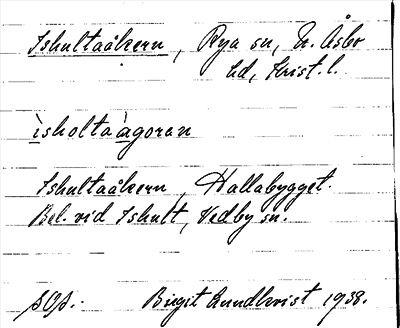 Ishultaåkern, Rya sn, N. Åsbo
hd, Krist. l.
ìsholtaàgoran
Ishultaåkern, Hallabygget.
Bel. vid Ishult, Vedby sn.
Birgit Lundkvist 1938.